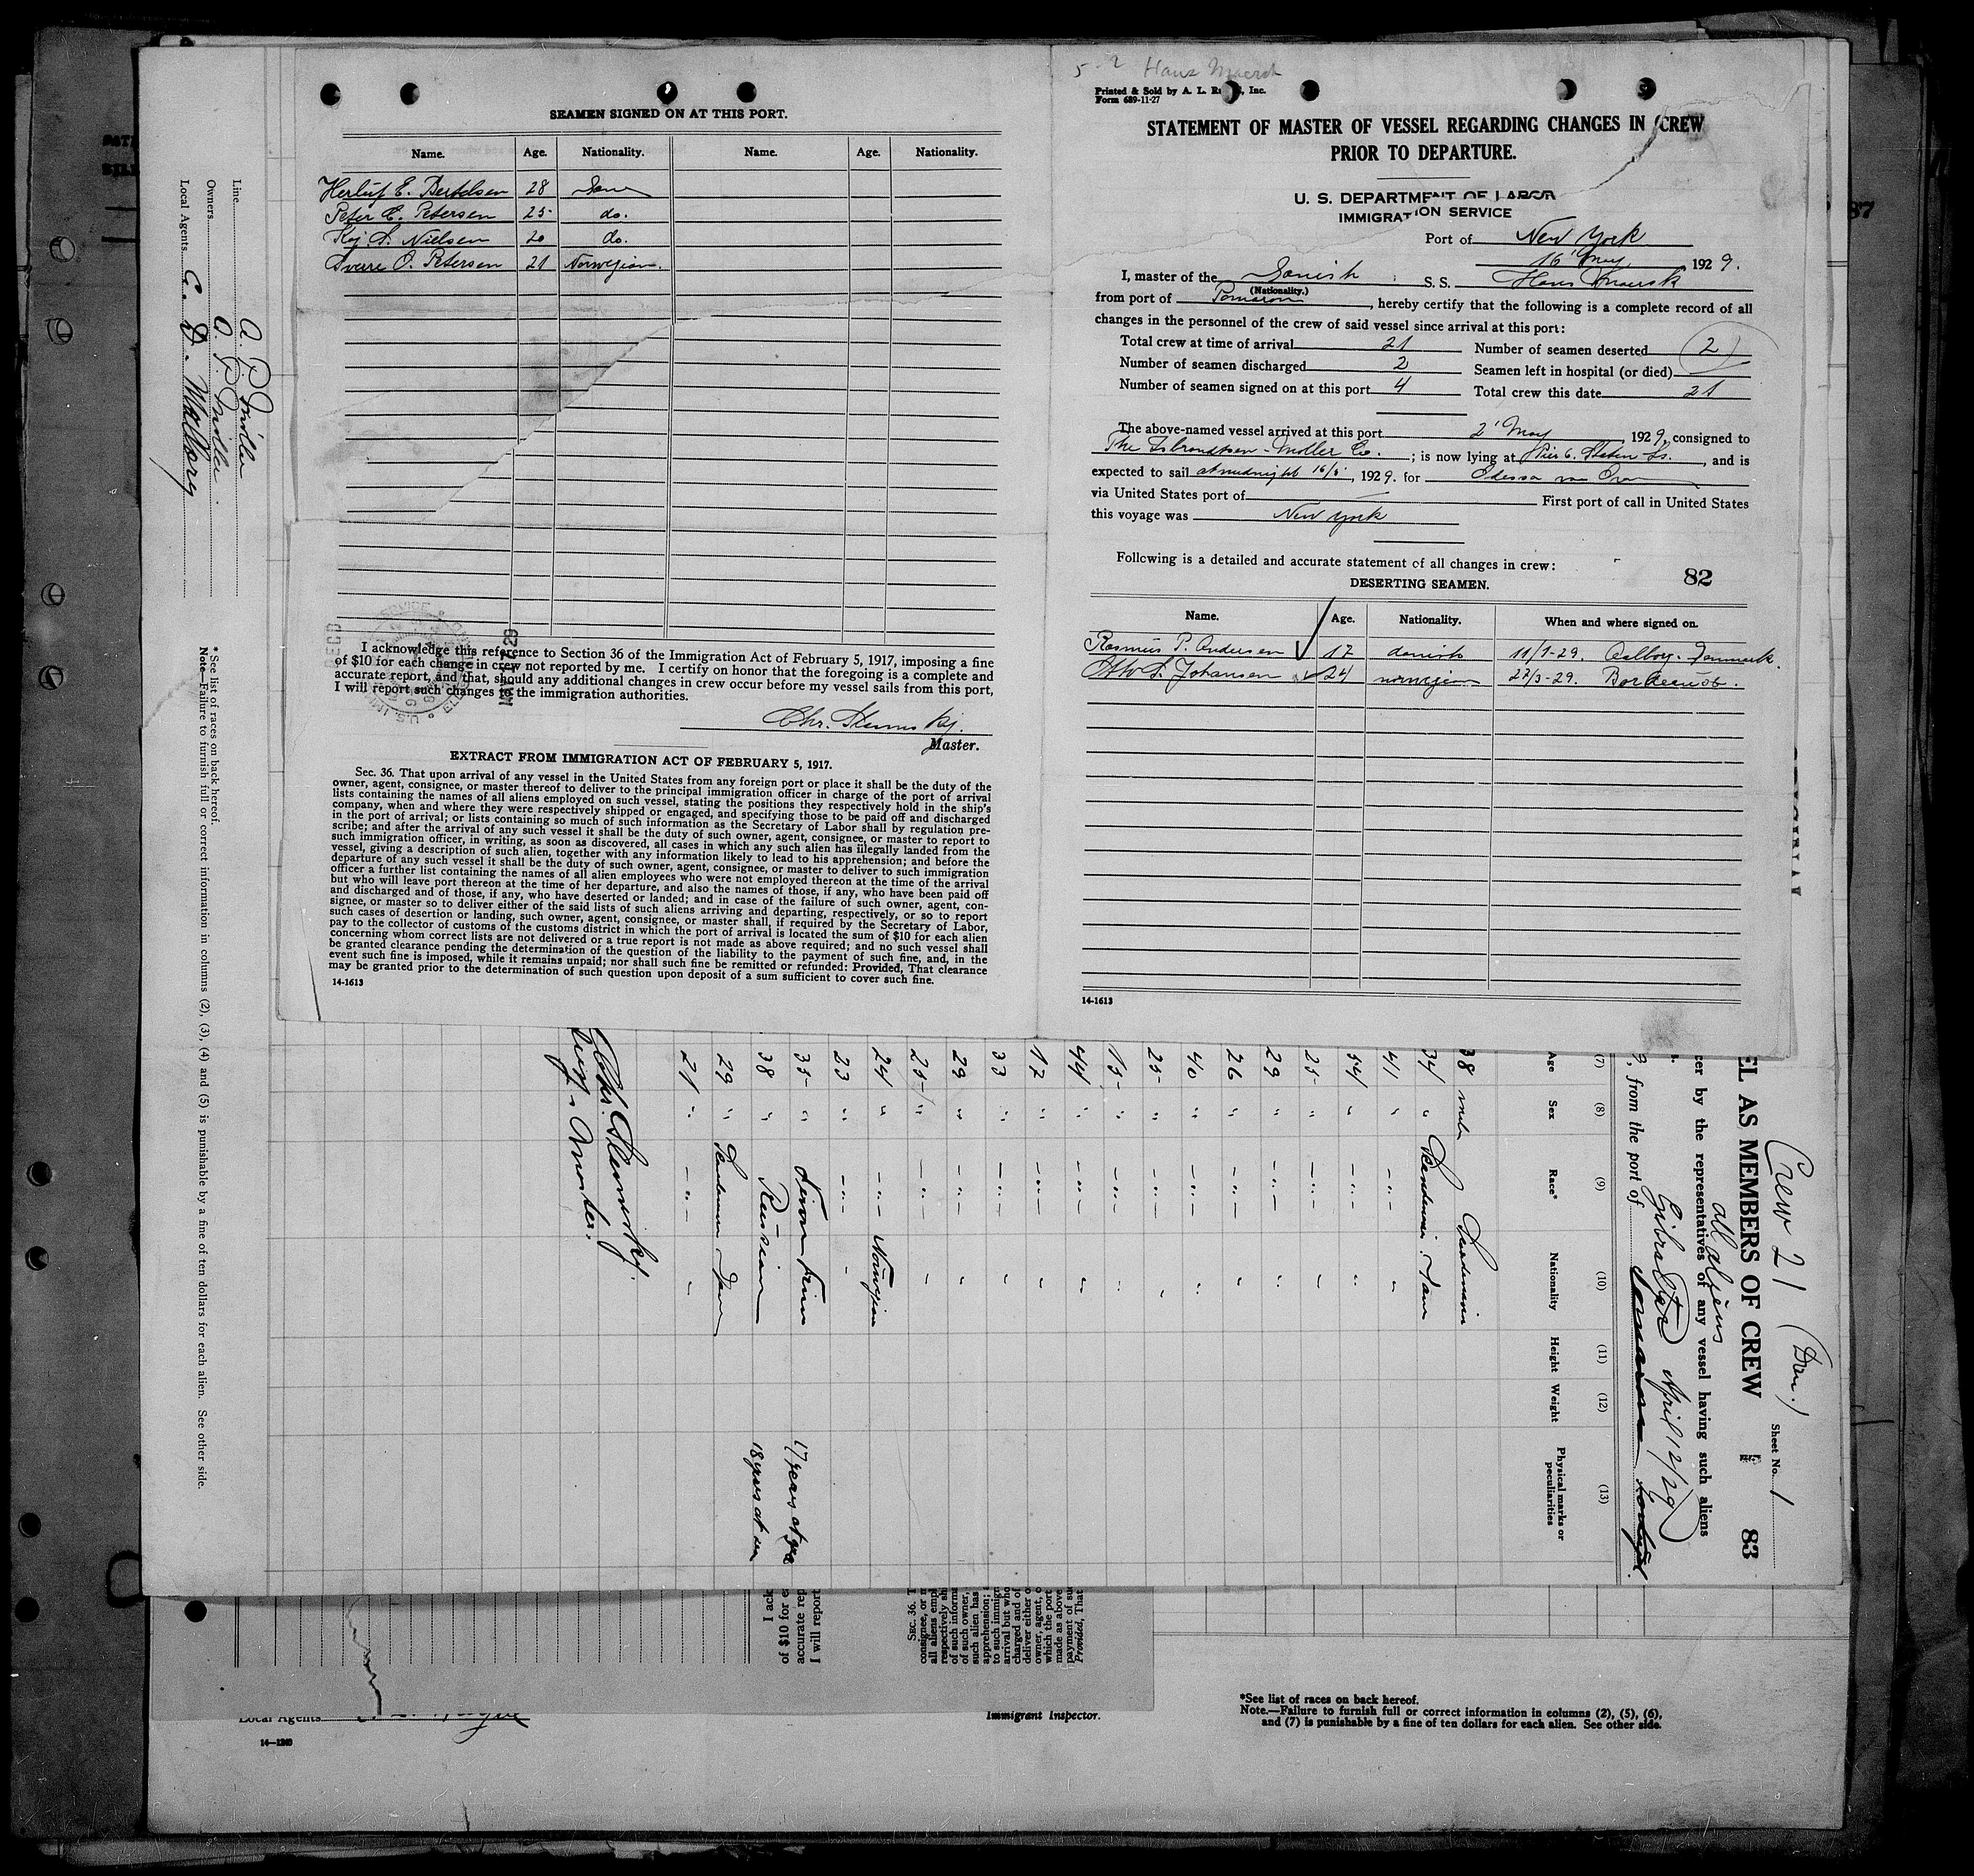 SEAMEN SIGNED ON AT THIS PORT.
Name. Age. Nationality. Name. Age. Nationality.
Herluf E. Bertelsen 28 Dane
Peter C. Petersen 25 do.
Kaj. S. Nielsen 20 do.
Sverre O. Petersen 21 Norwegian.
I acknowledge this reference to Section 36 of the Immigration Act of February 5, 1917, imposing a fine
of $10 for each change in crew not reported by me. I certify on honor that the foregoing is a complete and
accurate report, and that, should any additional changes in crew occur before my vessel sails from this port,
I will report such changes to the immigration authorities.
Master.
EXTRACT FROM IMMIGRATION ACT OF FEBRUARY 5, 1917.
Sec. 36. That upon arrival of any vessel in the United States from any foreign port or place it shall be the duty of the
owner, agent, consignee, or master thereof to deliver to the principal immigration officer in charge of the port of arrival
lists containing the names of all aliens employed on such vessel, stating the positions they respectively hold in the ship's
company, when and where they were respectively shipped or engaged, and specifying those to be paid off and discharged
in the port of arrival; or lists containing so much of such information as the Secretary of Labor shall by regulation pre-
scribe; and after the arrival of any such vessel it shall be the duty of such owner, agent, consignee, or master to report to
such immigration officer, in writing, as soon as discovered, all cases in which any such alien has illegally landed from the
vessel, giving a description of such alien, together with any information likely to lead to his apprehension; and before the
departure of any such vessel it shall be the duty of such owner, agent, consignee, or master to deliver to such immigration
officer a further list containing the names of all alien employees who were not employed thereon at the time of the arrival
but who will leave port thereon at the time of her departure, and also the names of those, if any, who have been paid off
and discharged and of those, if any, who have deserted or landed; and in case of the failure of such owner, agent, con-
signee, or master so to deliver either of the said lists of such aliens arriving and departing, respectively, or so to report
such cases of desertion or landing, such owner, agent, consignee or master shall, if required by the Secretary of Labor,
pay to the collector of customs of the customs district in which the port of arrival is located the sum of $10 for each alien
concerning whom correct lists are not delivered or a true report is not made as above required; and no such vessel shall
be granted clearance pending the determination of the question of the liability to the payment of such fine, and, in the
event such fine is imposed, while it remains unpaid; nor shall such fine be remitted or refunded: Provided, That clearance
may be granted prior to the determination of such question upon deposit of a sum sufficient to cover such fine.
14-1613
5-2 Hans Maersk
Printed & Sold by A. L. Inc.
Form 689-11-27
STATEMENT OF MASTER OF VESSEL REGARDING CHANGES IN CREW
PRIOR TO DEPARTURE.
U. S. DEPARTMENT OF LABOR
IMMIGRATION SERVICE
Port of New York
16' May 1929.
I, master of the Danish S. S. Hans Maersk
(Nationality.)
from port of Pomaron, hereby certify that the following is a complete record of all
changes in the personnel of the crew of said vessel since arrival at this port:
Total crew at time of arrival 21 Number of seamen deserted 2
Number of seamen discharged 2 Seamen left in hospital (or died)
Number of seamen signed on at this port 4 Total crew this date 21
The above-named vessel arrived at this port 2' May 1929, consigned to
The Isbrandtsen-Moller Co. ; is now lying at Pier 6. Staten Is., and is
expected to sail at midnight 16/5, 1929. for Odessa via Oran
via United States port of First port of call in United States
this voyage was New York
Following is a detailed and accurate statement of all changes in crew:
82
DESERTING SEAMEN.
Name. Age. Nationality. When and where signed on.
Rasmus P. Andersen 17 danish 11/1-29. Aalborg. Danmark.
Otto S. Johansen 24 norwegian
14-1613
Line A. P. Möller
Owners A. P. Möller
Local Agents C. D. Mallory
* See list of races on back hereof.
Note—Failure to furnish full or correct information in columns (2), (3), (4) and (5) is punishable by a fine of ten dollars for each alien. See other side.
Crew 21 (Dan.)
Sheet No. 1
EL AS MEMBERS OF CREW 83
all aliens
cer by the representatives of any vessel having such aliens
Gibraltar April 12/29
9, from the port of
(7) (8) (9) (10) (11) (12) (13)
Age Sex Race* Nationality Height Weight Physical marks or peculiarities
38 male
34 " Dane
41 " -"- "
54 " -"- "
25 " -"- "
29 " -"- "
26 " -"- "
40 " -"- "
25 " -"- "
15 " -"- "
44 " -"- "
17 " -"- "
33 " -"- "
29 " -"- "
25 " -"- "
24 " -"- Norwegian
23 " -"-
35 " Finn 17 years at sea
38 " Russian 18 years at sea
29 " Dane
21 " -"- "
Master.
I ack
of $10 for e
accurate rep
I will report
SEC. 36. T
consignee, or m
all aliens empl
respectively shi
of such informa
of such owner,
such alien has
apprehension; a
to such immigr
arrival but who
charged and of
deliver either o
owner, agent, o
which the port
made as above
payment of suc
Provided, That
Local Agents
14—1240
Immigrant Inspector.
*See list of races on back hereof.
Note.—Failure to furnish full or correct information in columns (2), (5), (6),
and (7) is punishable by a fine of ten dollars for each alien. See other side.
87